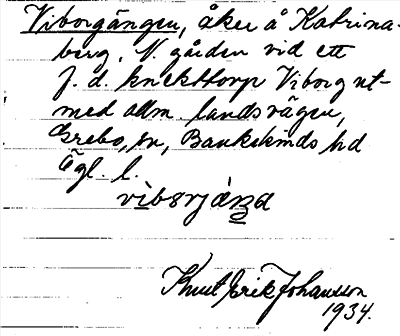 Viborgängen, åker å Katrina-
berg, V. gården vid ett
f. d. knekttorp Viborg ut-
med allm. landsvägen,
Grebo, sn, Bankekinds hd
Ögl. l.
Knut Erik Johansson
1934.